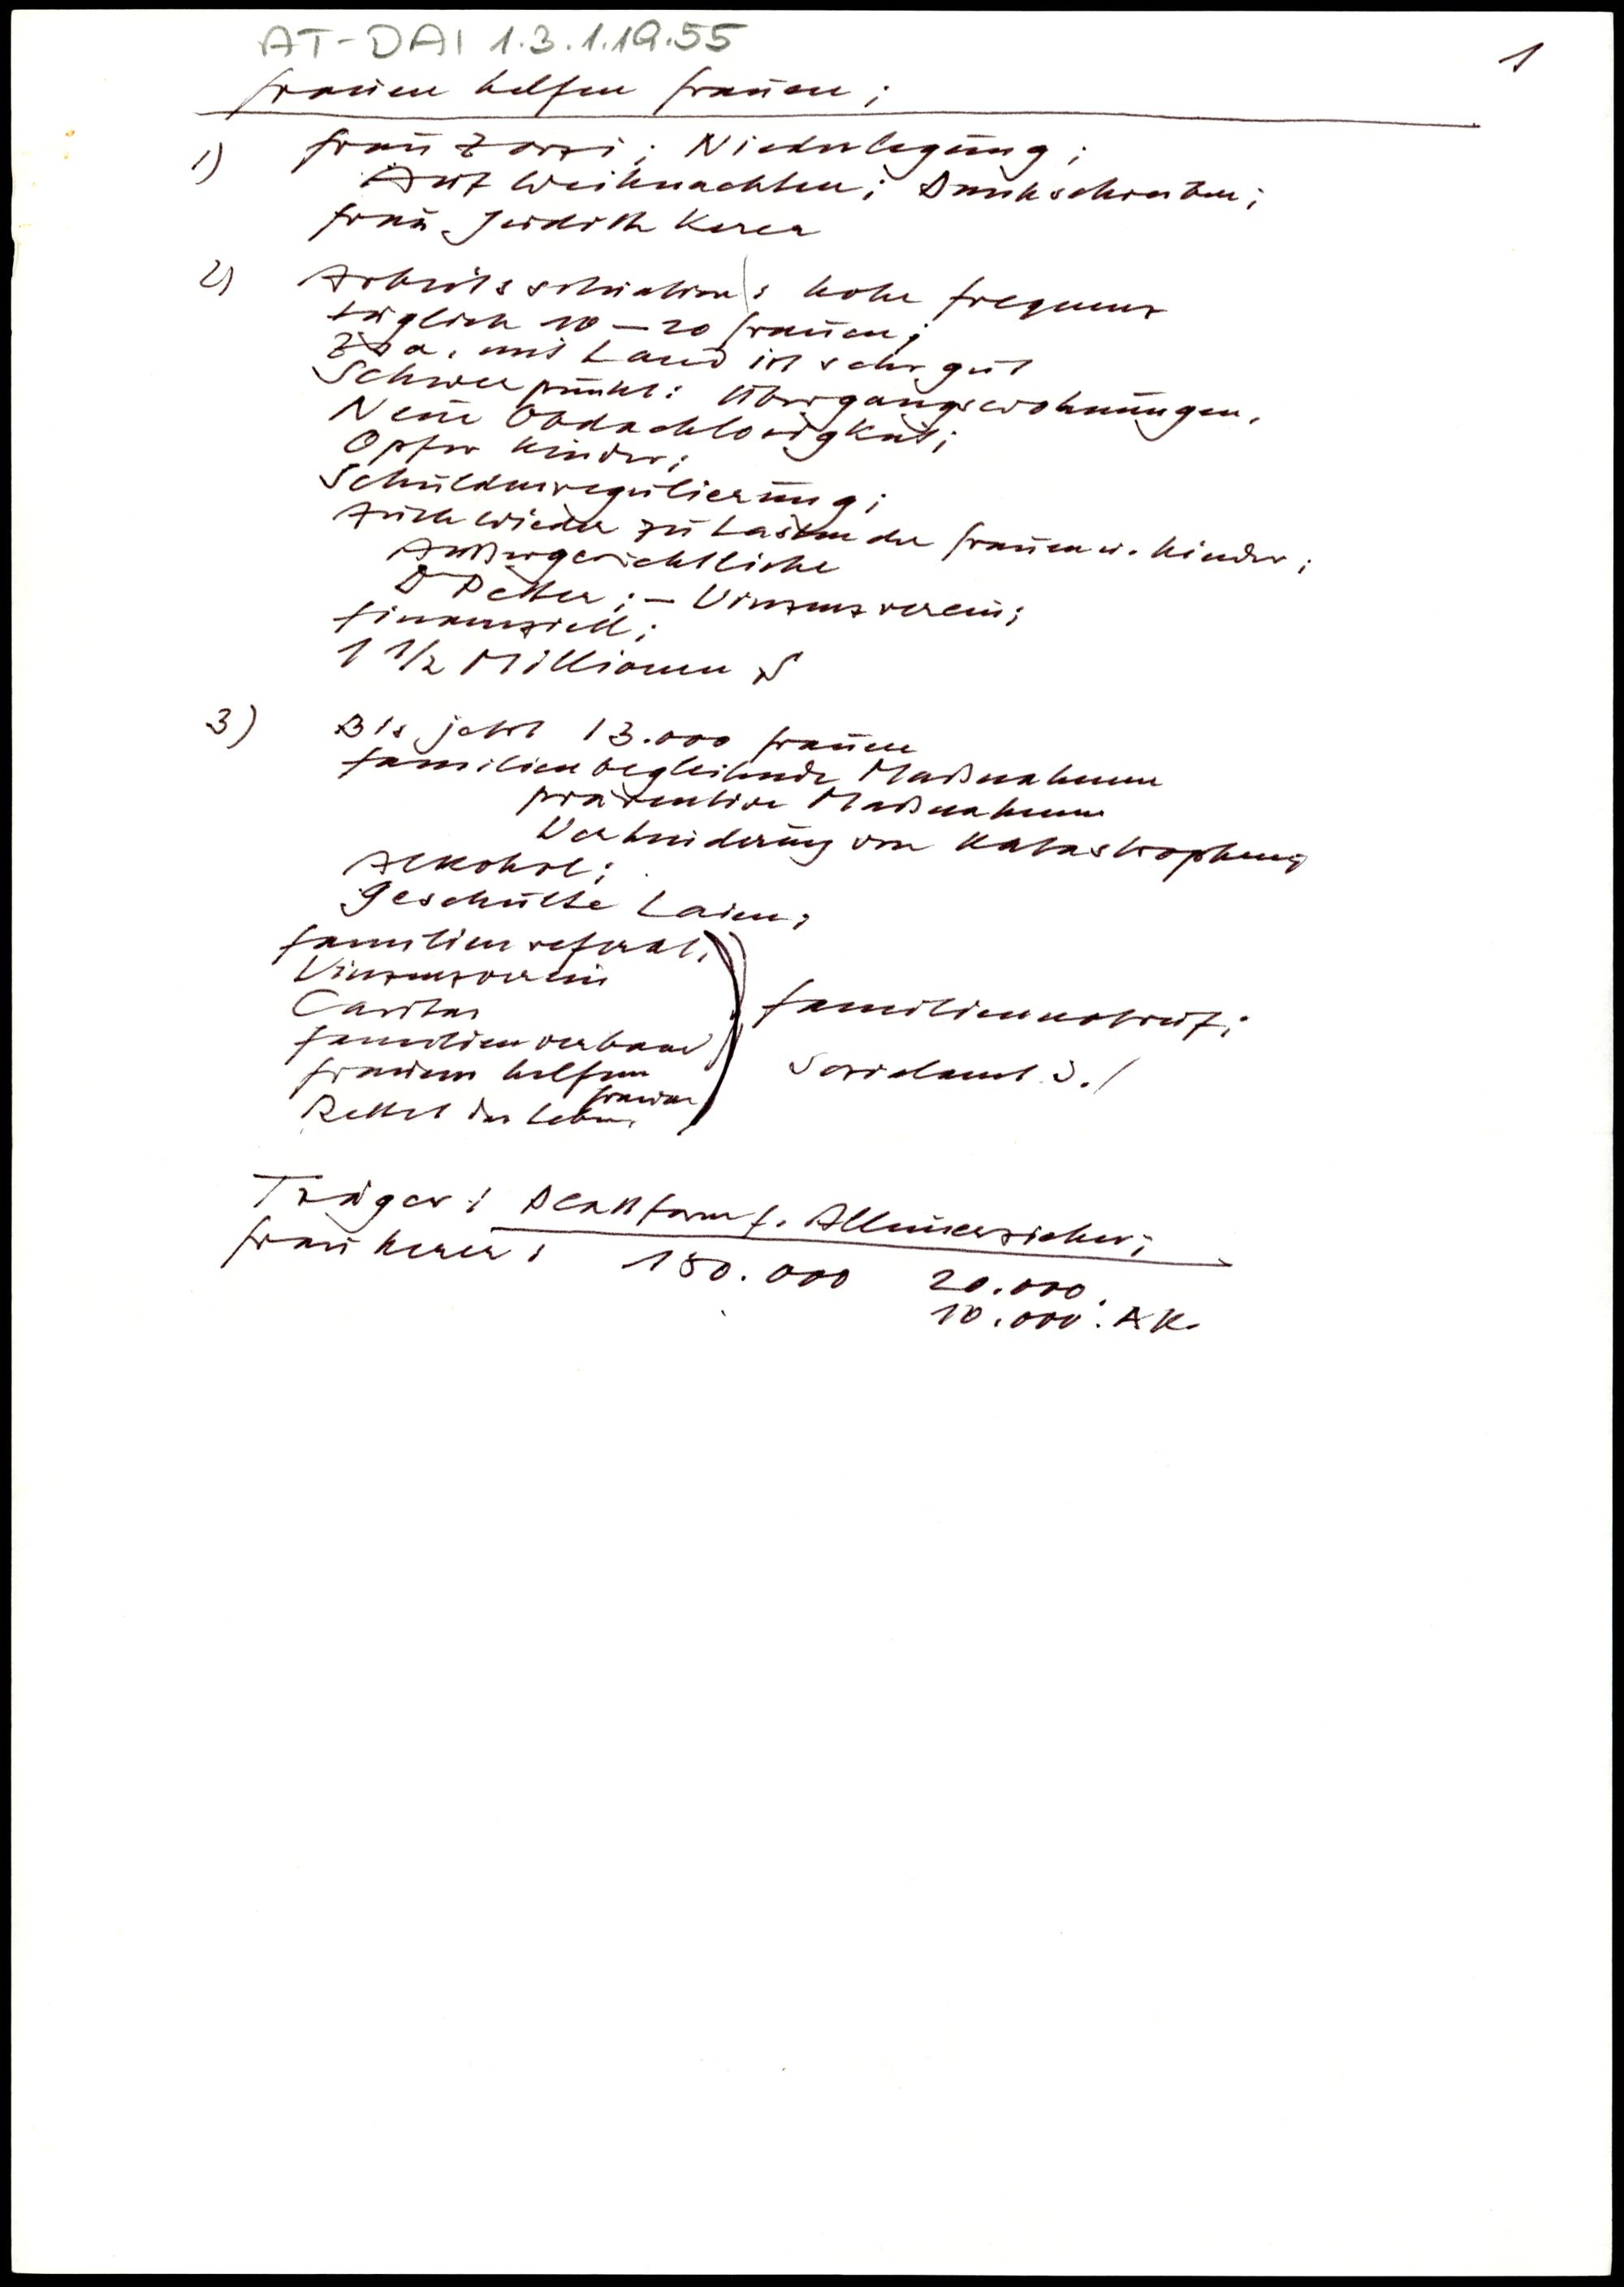 AT-DAI 1.3.1.19.55
1
Frauen helfen Frauen;
1) Frau Zorzi; Niederlegung;
Auf Weihnachten; Dankschreiben;
Frau Judith Kerer
2) Arbeitssituation: hohe Frequenz
täglich 10 – 20 Frauen;
Zsa. mit Land ist sehr gut
Schwerpunkt: Übergangswohnungen.
Neue Obdachlosigkeit;
Opfer Kinder;
Schuldenregulierung;
Auch wieder zu Lasten der Frauen u. Kinder;
Außergerichtliche
; – Vinzenzverein;
finanziell;
1 1/2 Millionen S
3) Bis jetzt 13.000 Frauen
Familienbegleitende Maßnahmen
präventive Maßnahmen
Verhinderung von Katastrophen;
Alkohol;
Geschulte Laien;
Familienreferat,
Vinzenzverein
Caritas
Familienverband
Frauen helfen
Frauen
Rettet das Leben
Familiennotruf;
Sozialamt
Träger: Plattform f. Alleinerzieher;
Frau Kerer: 180.000 20.000.
10.000: AK.